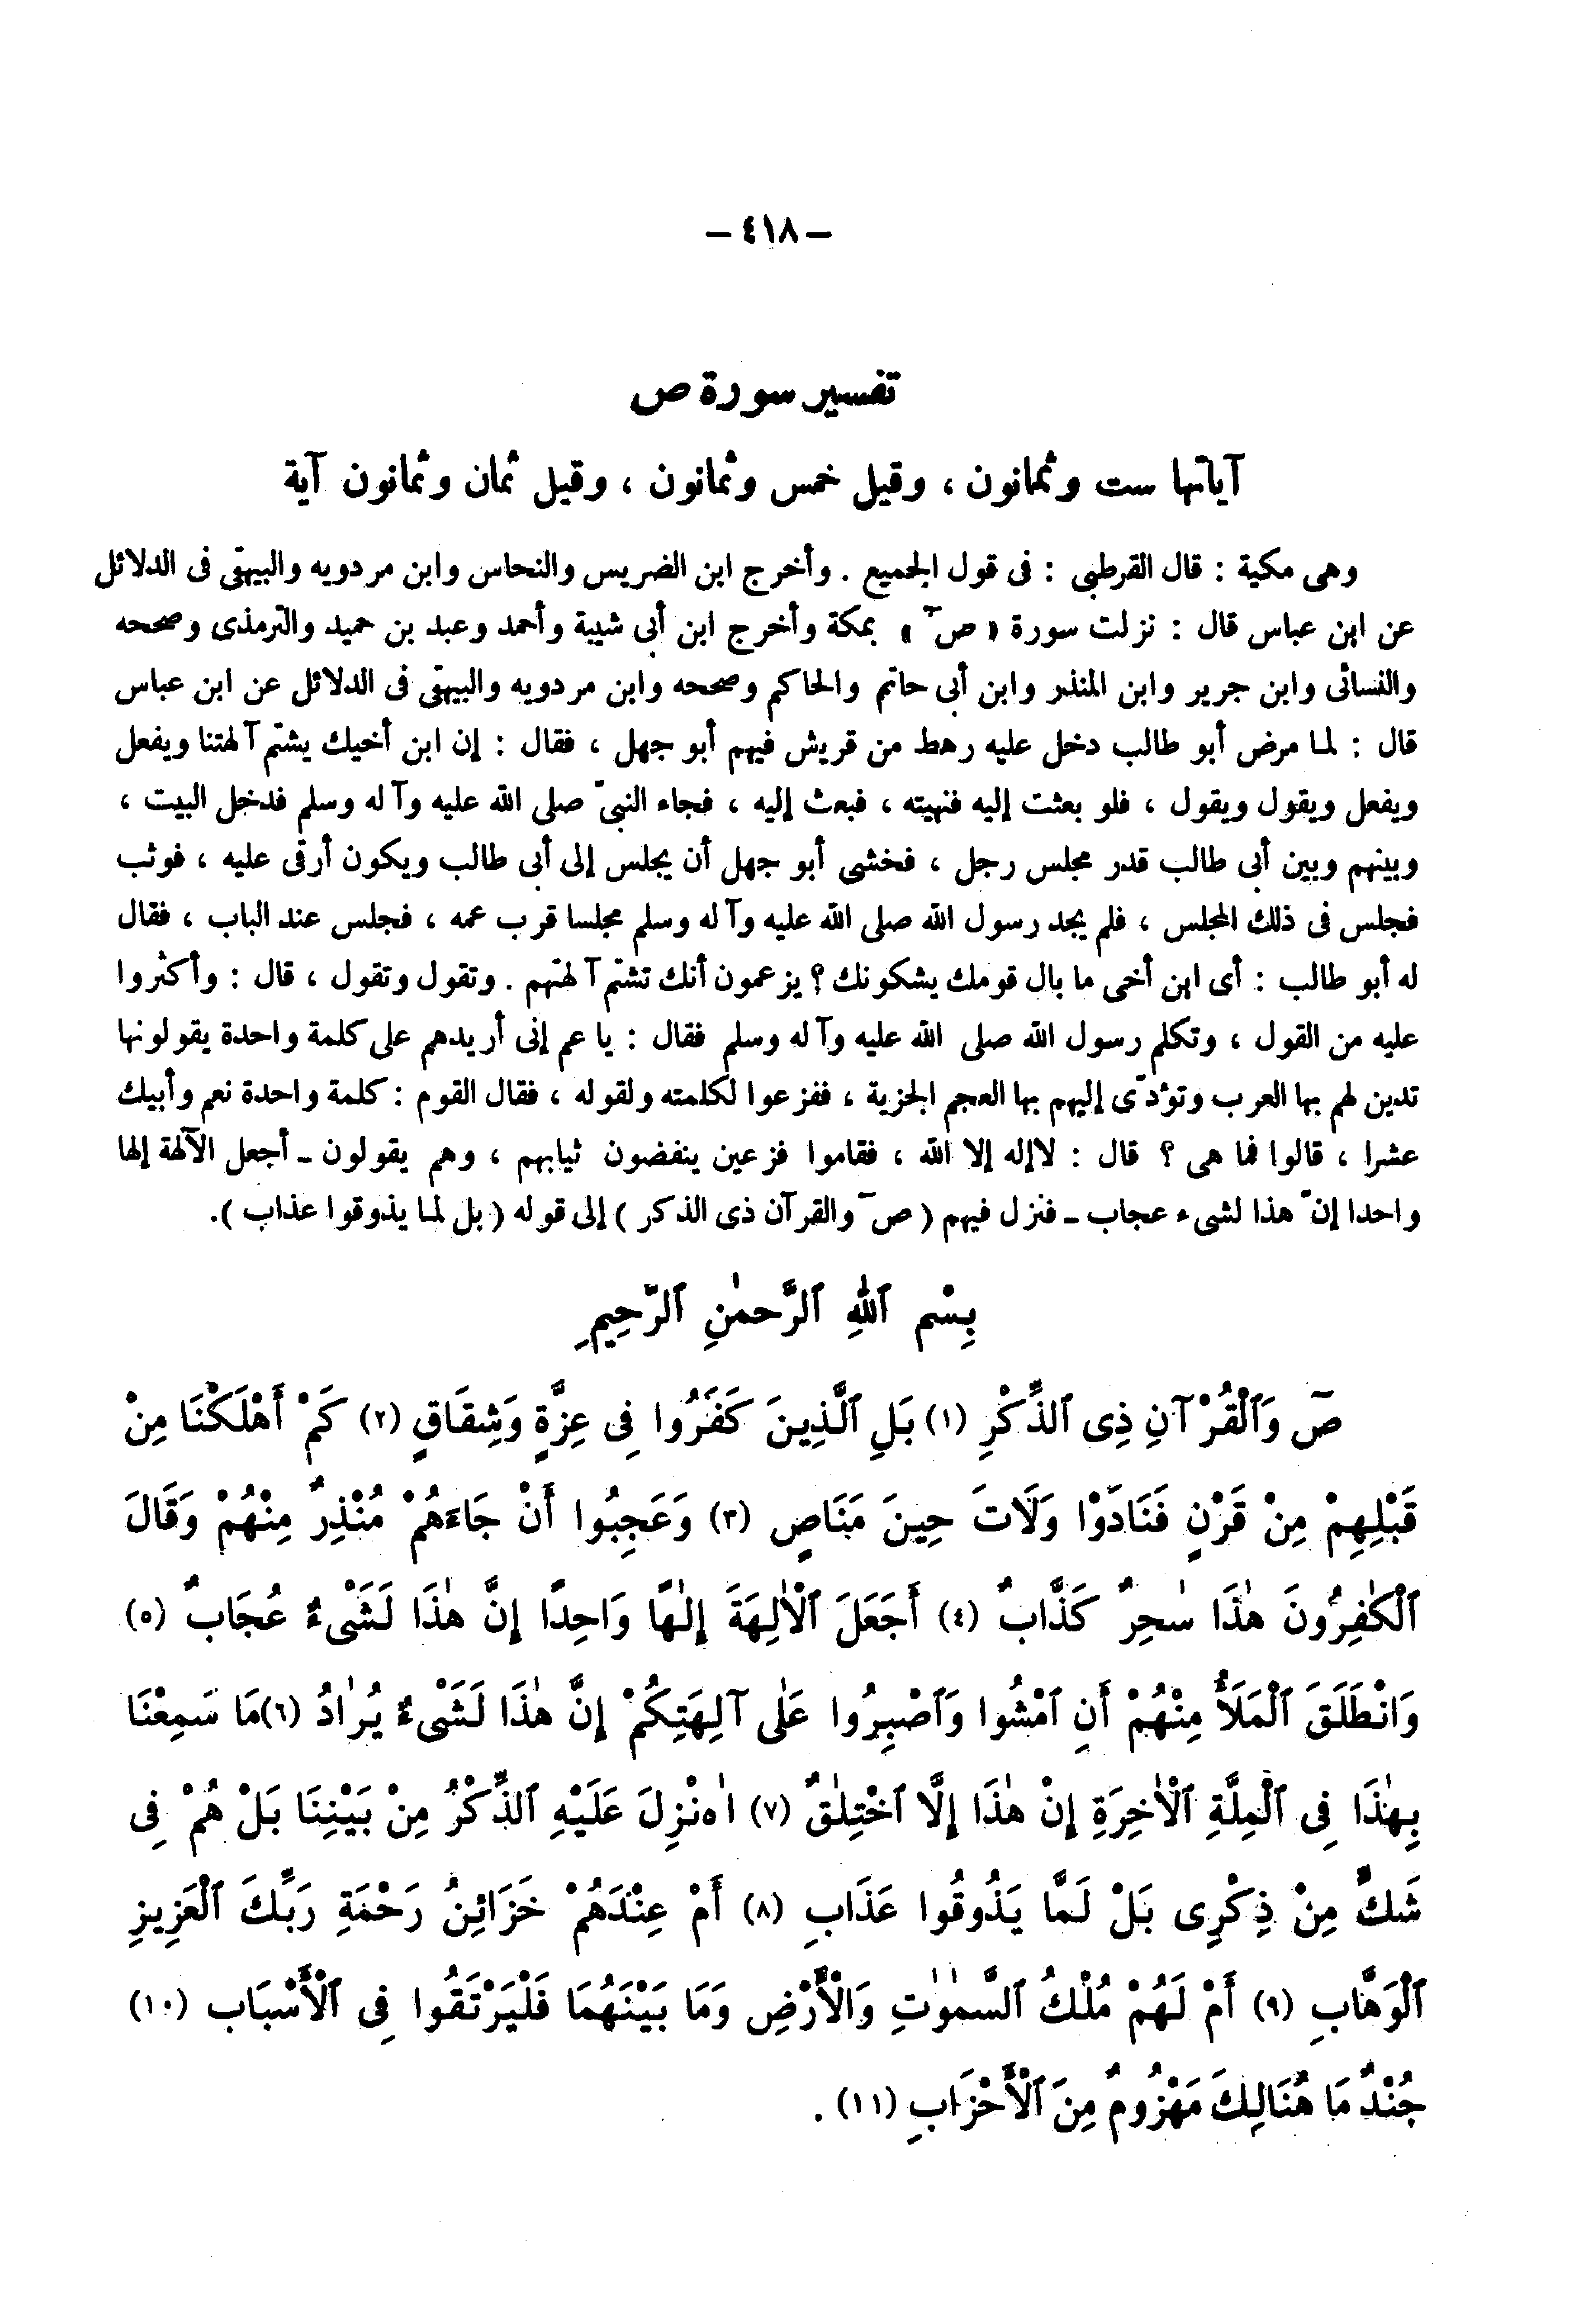 — ٤١٨ —
تفسير سورة ص
آياتها ست وثمانون ، وقيل خمس وثمانون ، وقيل ثمان وثمانون آية
وهى مكية : قال القرطبى : فى قول الجميع . وأخرج ابن الضريس والنحاس وابن مردويه والبيهقى فى الدلائل
عن ابن عباس قال : نزلت سورة « صۤ » بمكة وأخرج ابن أبى شيبة وأحمد وعبد بن حميد والترمذى وصححه
والنسائى وابن جرير وابن المنذر وابن أبى حاتم والحاكم وصححه وابن مردويه والبيهقى فى الدلائل عن ابن عباس
قال : لما مرض أبو طالب دخل عليه رهط من قريش فيهم أبو جهل ، فقال : إن ابن أخيك يشتم آلهتنا ويفعل
ويفعل ويقول ويقول ، فلو بعثت إليه فنهيته ، فبعث إليه ، فجاء النبىّ صلى الله عليه وآله وسلم فدخل البيت ،
وبينهم وبين أبى طالب قدر مجلس رجل ، فخشى أبو جهل أن يجلس إلى أبى طالب ويكون أرقى عليه ، فوثب
فجلس فى ذلك المجلس ، فلم يجد رسول الله صلى الله عليه وآله وسلم مجلسا قرب عمه ، فجلس عند الباب ، فقال
له أبو طالب : أى ابن أخى ما بال قومك يشكونك ؟ يزعمون أنك تشتم آلهتهم . وتقول وتقول ، قال : وأكثروا
عليه من القول ، وتكلم رسول الله صلى الله عليه وآله وسلم فقال : يا عم إنى أريدهم على كلمة واحدة يقولونها
تدين لهم بها العرب وتؤدّى إليهم بها العجم الجزية ، ففزعوا لكلمته ولقوله ، فقال القوم : كلمة واحدة نعم وأبيك
عشرا ، قالوا فما هى ؟ قال : لاإله إلا الله ، فقاموا فزعين ينفضون ثيابهم ، وهم يقولون ـ أجعل الآلهة إلها
واحدا إنّ هذا لشىء عجاب ـ فنزل فيهم ( صۤ والقرآن ذى الذكر ) إلى قوله ( بل لما يذوقوا عذاب ).
بِسْمِ ٱللهِ ٱلرَّحمٰنِ ٱلرَّحِيمِ
صۤ وَٱلْقُرْآنِ ذِى ٱلذِّكْرِ (١) بَلِ ٱلَّذِينَ كَفَرُوا فِى عِزَّةٍ وَشِقَاقٍ (٢) كَمْ أَهْلَكْنَا مِنْ
قَبْلِهِمْ مِنْ قَرْنٍ فَنَادَوْا وَلَاتَ حِينَ مَنَاصٍ (٣) وَعَجِبُوا أَنْ جَاءَهُمْ مُنْذِرٌ مِنْهُمْ وَقَالَ
ٱلْكٰفِرُونَ هٰذَا سٰحِرٌ كَذَّابٌ (٤) أَجَعَلَ ٱلْاٰلِهَةَ إِلٰهًا وَاحِدًا إِنَّ هٰذَا لَشَىْءٌ عُجَابٌ (٥)
وَانْطَلَقَ ٱلْمَلَأُ مِنْهُمْ أَنِ ٱمْشُوا وَٱصْبِرُوا عَلٰى آلِهَتِكُمْ إِنَّ هٰذَا لَشَىْءٌ يُرٰادُ (٦) مَا سَمِعْنَا
بِهٰذَا فِى ٱلْمِلَّةِ ٱلْاٰخِرَةِ إِنْ هٰذَا إِلَّا ٱخْتِلٰقٌ (٧) اٰهنْزِلَ عَلَيْهِ ٱلذِّكْرُ مِنْ بَيْنِنَا بَلْ هُمْ فِى
شَكٍّ مِنْ ذِكْرِى بَلْ لَمَّا يَذُوقُوا عَذَابِ (٨) أَمْ عِنْدَهُمْ خَزَائِنُ رَحْمَةِ رَبِّكَ ٱلْعَزِيزِ
ٱلْوَهَّابِ (٩) أَمْ لَهُمْ مُلْكُ ٱلسَّمٰوٰتِ وَالْأَرْضِ وَمَا بَيْنَهُمَا فَلْيَرْتَقُوا فِى ٱلْأَسْبَابِ (١٠)
جُنْدٌ مَا هُنَالِكَ مَهْزُومٌ مِنَ ٱلْأَحْزَابِ (١١) .